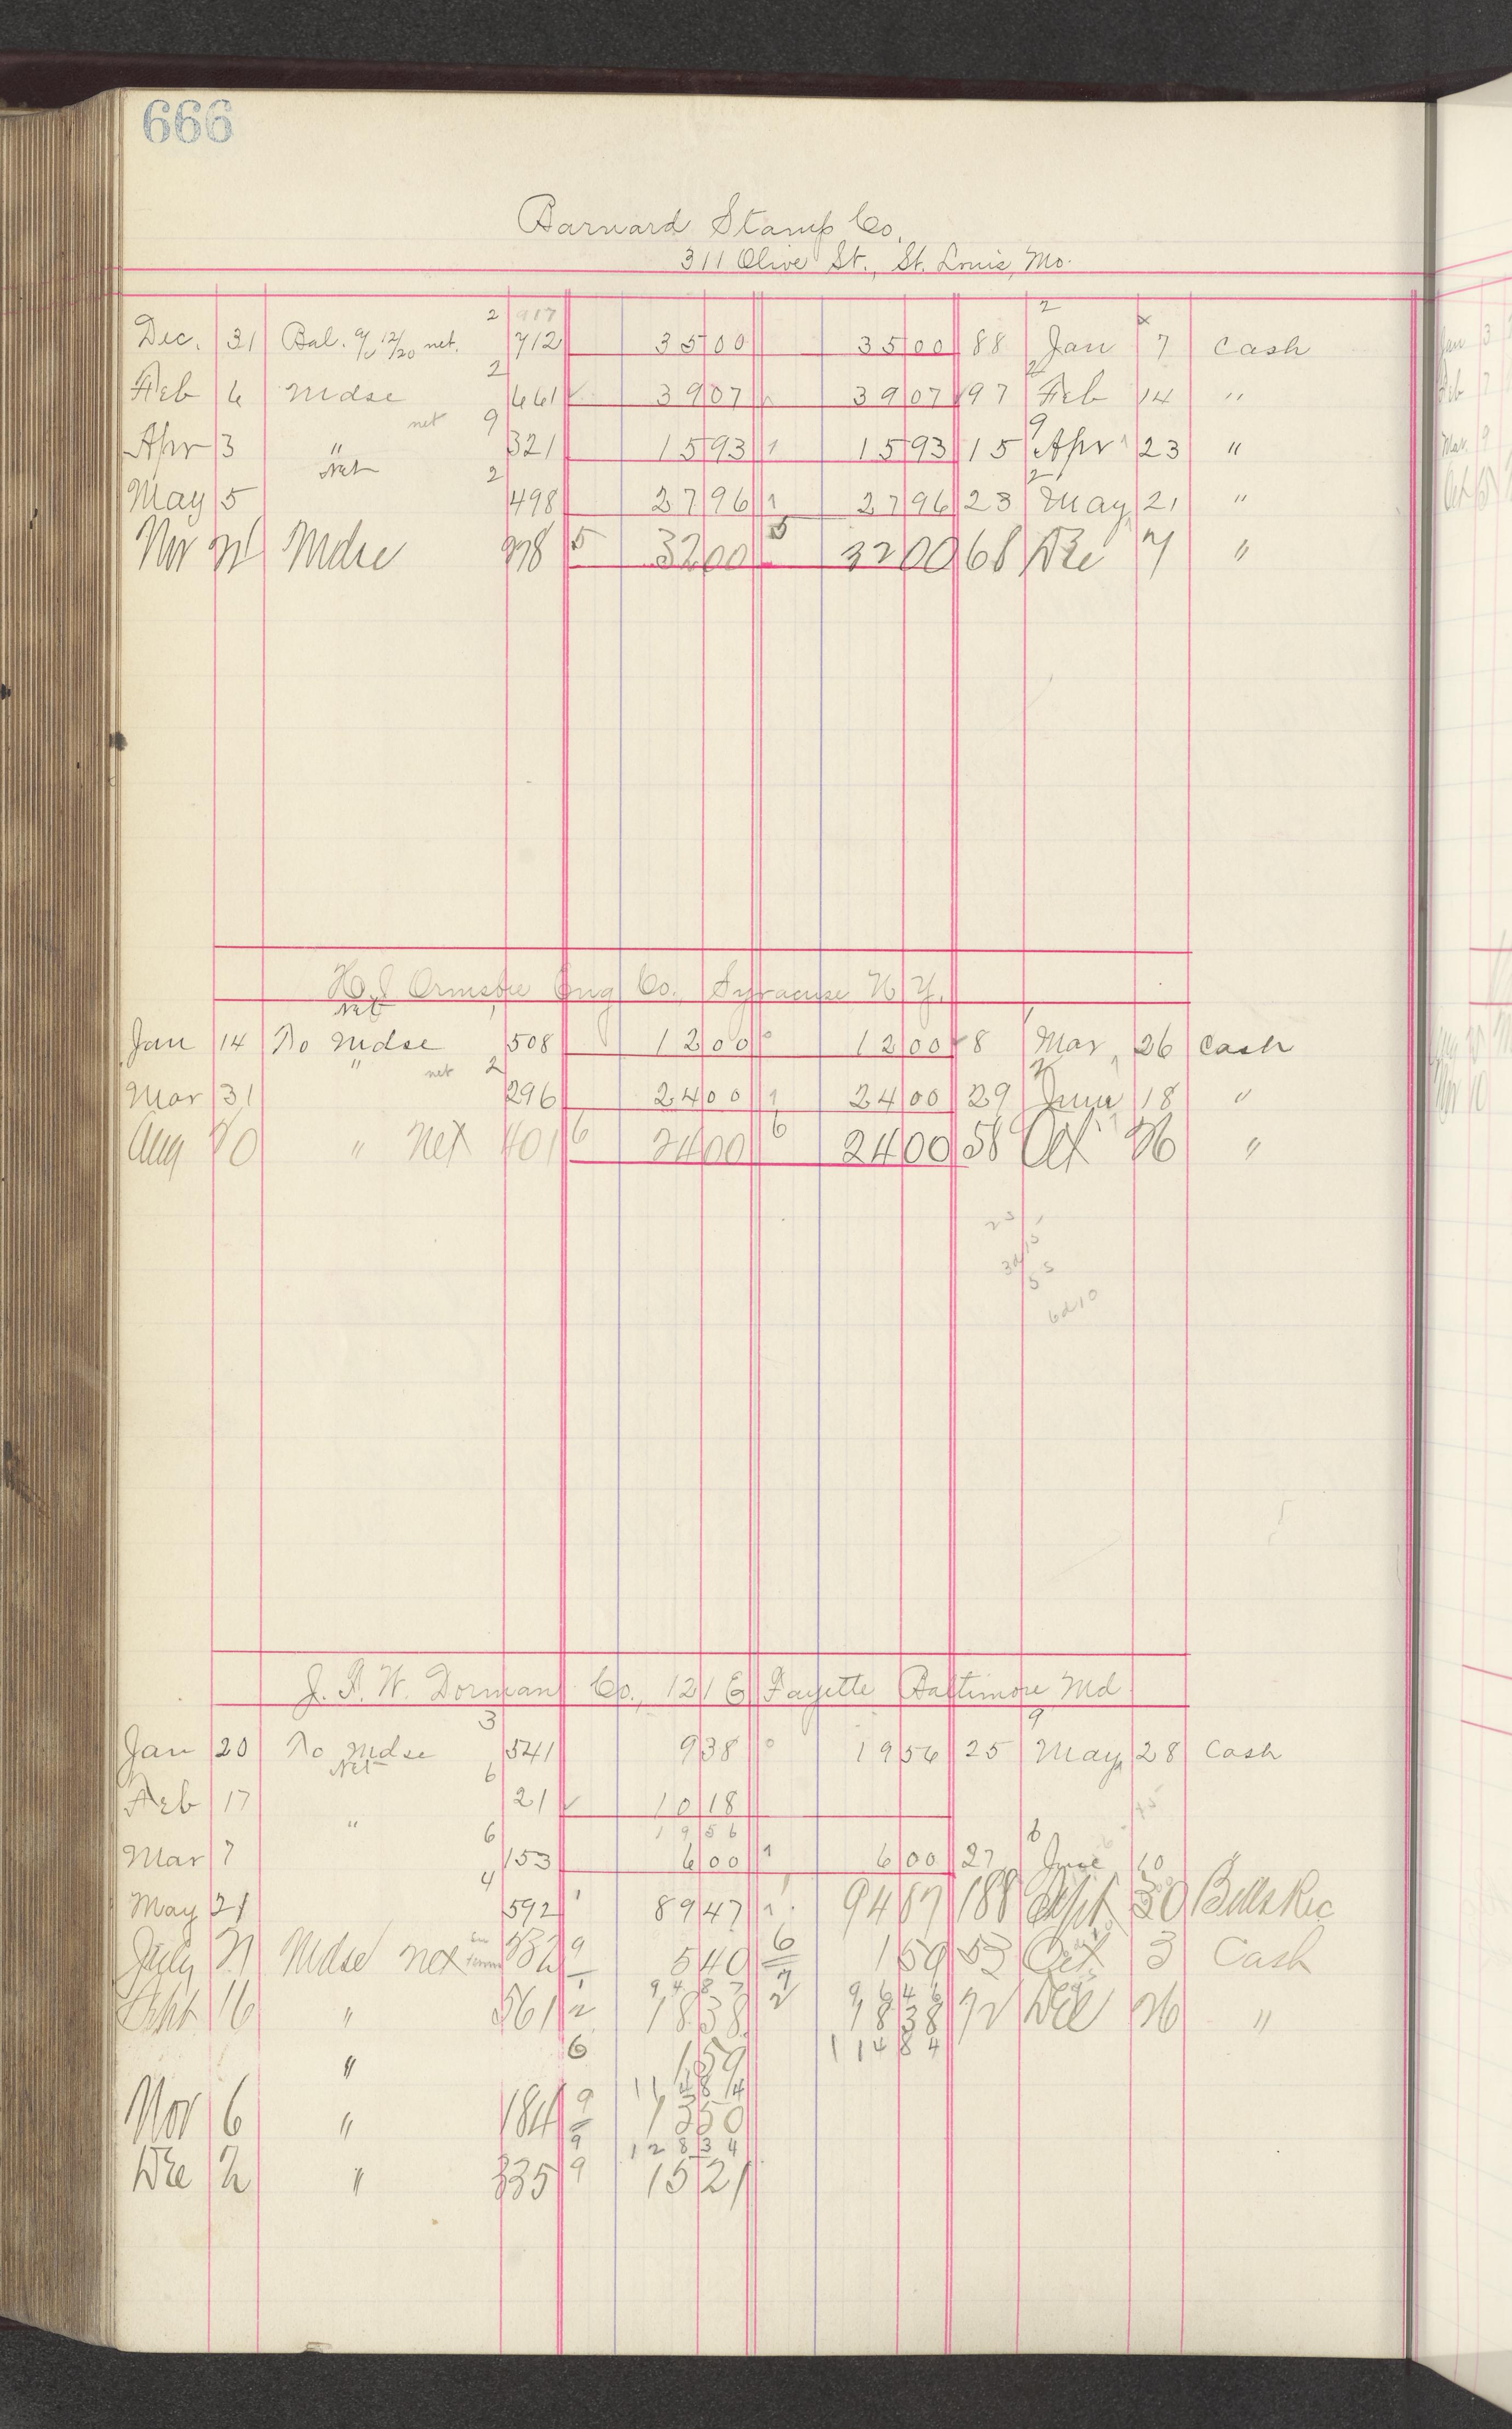 666
Barnard Stamp Co.
311 Olive St., St. Louis, Mo.
2 917 2
Dec. 31 Bal. 12/20 net. 712 35 00 35 00 88 Jan 7 Cash
2
Feb 6 Mdse 661 39 07 39 07 97 Feb 14 "
net 9 9
Apr 3 " 321 15 93 1 15 93 15 Apr 23 "
Net 2 2
May 5 498 27 96 1 27 96 23 May 21 "
Nov 21 Mdse 978 5 32 00 5 32 00 68 Dec 7 "
Ormsbee Eng Co. Syracuse N.Y.
Net
Jan 14 To Mdse 508 12 00 0 12 00 8 Mar 26 Cash
" net 2
Mar 31 296 24 00 1 24 00 29 June 18 "
Aug 10 " Net 401 6 24 00 6 24 00 58 Oct 26 "
6 10
J. F. W. Dorman Co., 121 E Fayette Baltimore Md
3 9
Jan 20 To Mdse 541 9 38 0 19 56 25 May 28 Cash
Net 6
Feb 17 21 10 18
" 19 56
6 6
Mar 7 153 6 00 1 6 00 27 June 10
4
May 21 592 1 89 47 1 94 87 188 Sept 30 Bills Rec
July 21 Mdse net 9 5 40 6 1 59 53 Oct 3 Cash
94 87 7 96 46
Sept 16 " 561 2 18 38 2 18 38 72 Dec 26 "
114 84
" 6 1 59
114 84
Nov 6 " 184 9 13 50
9 128 34
Dec 2 " 335 9 15 21